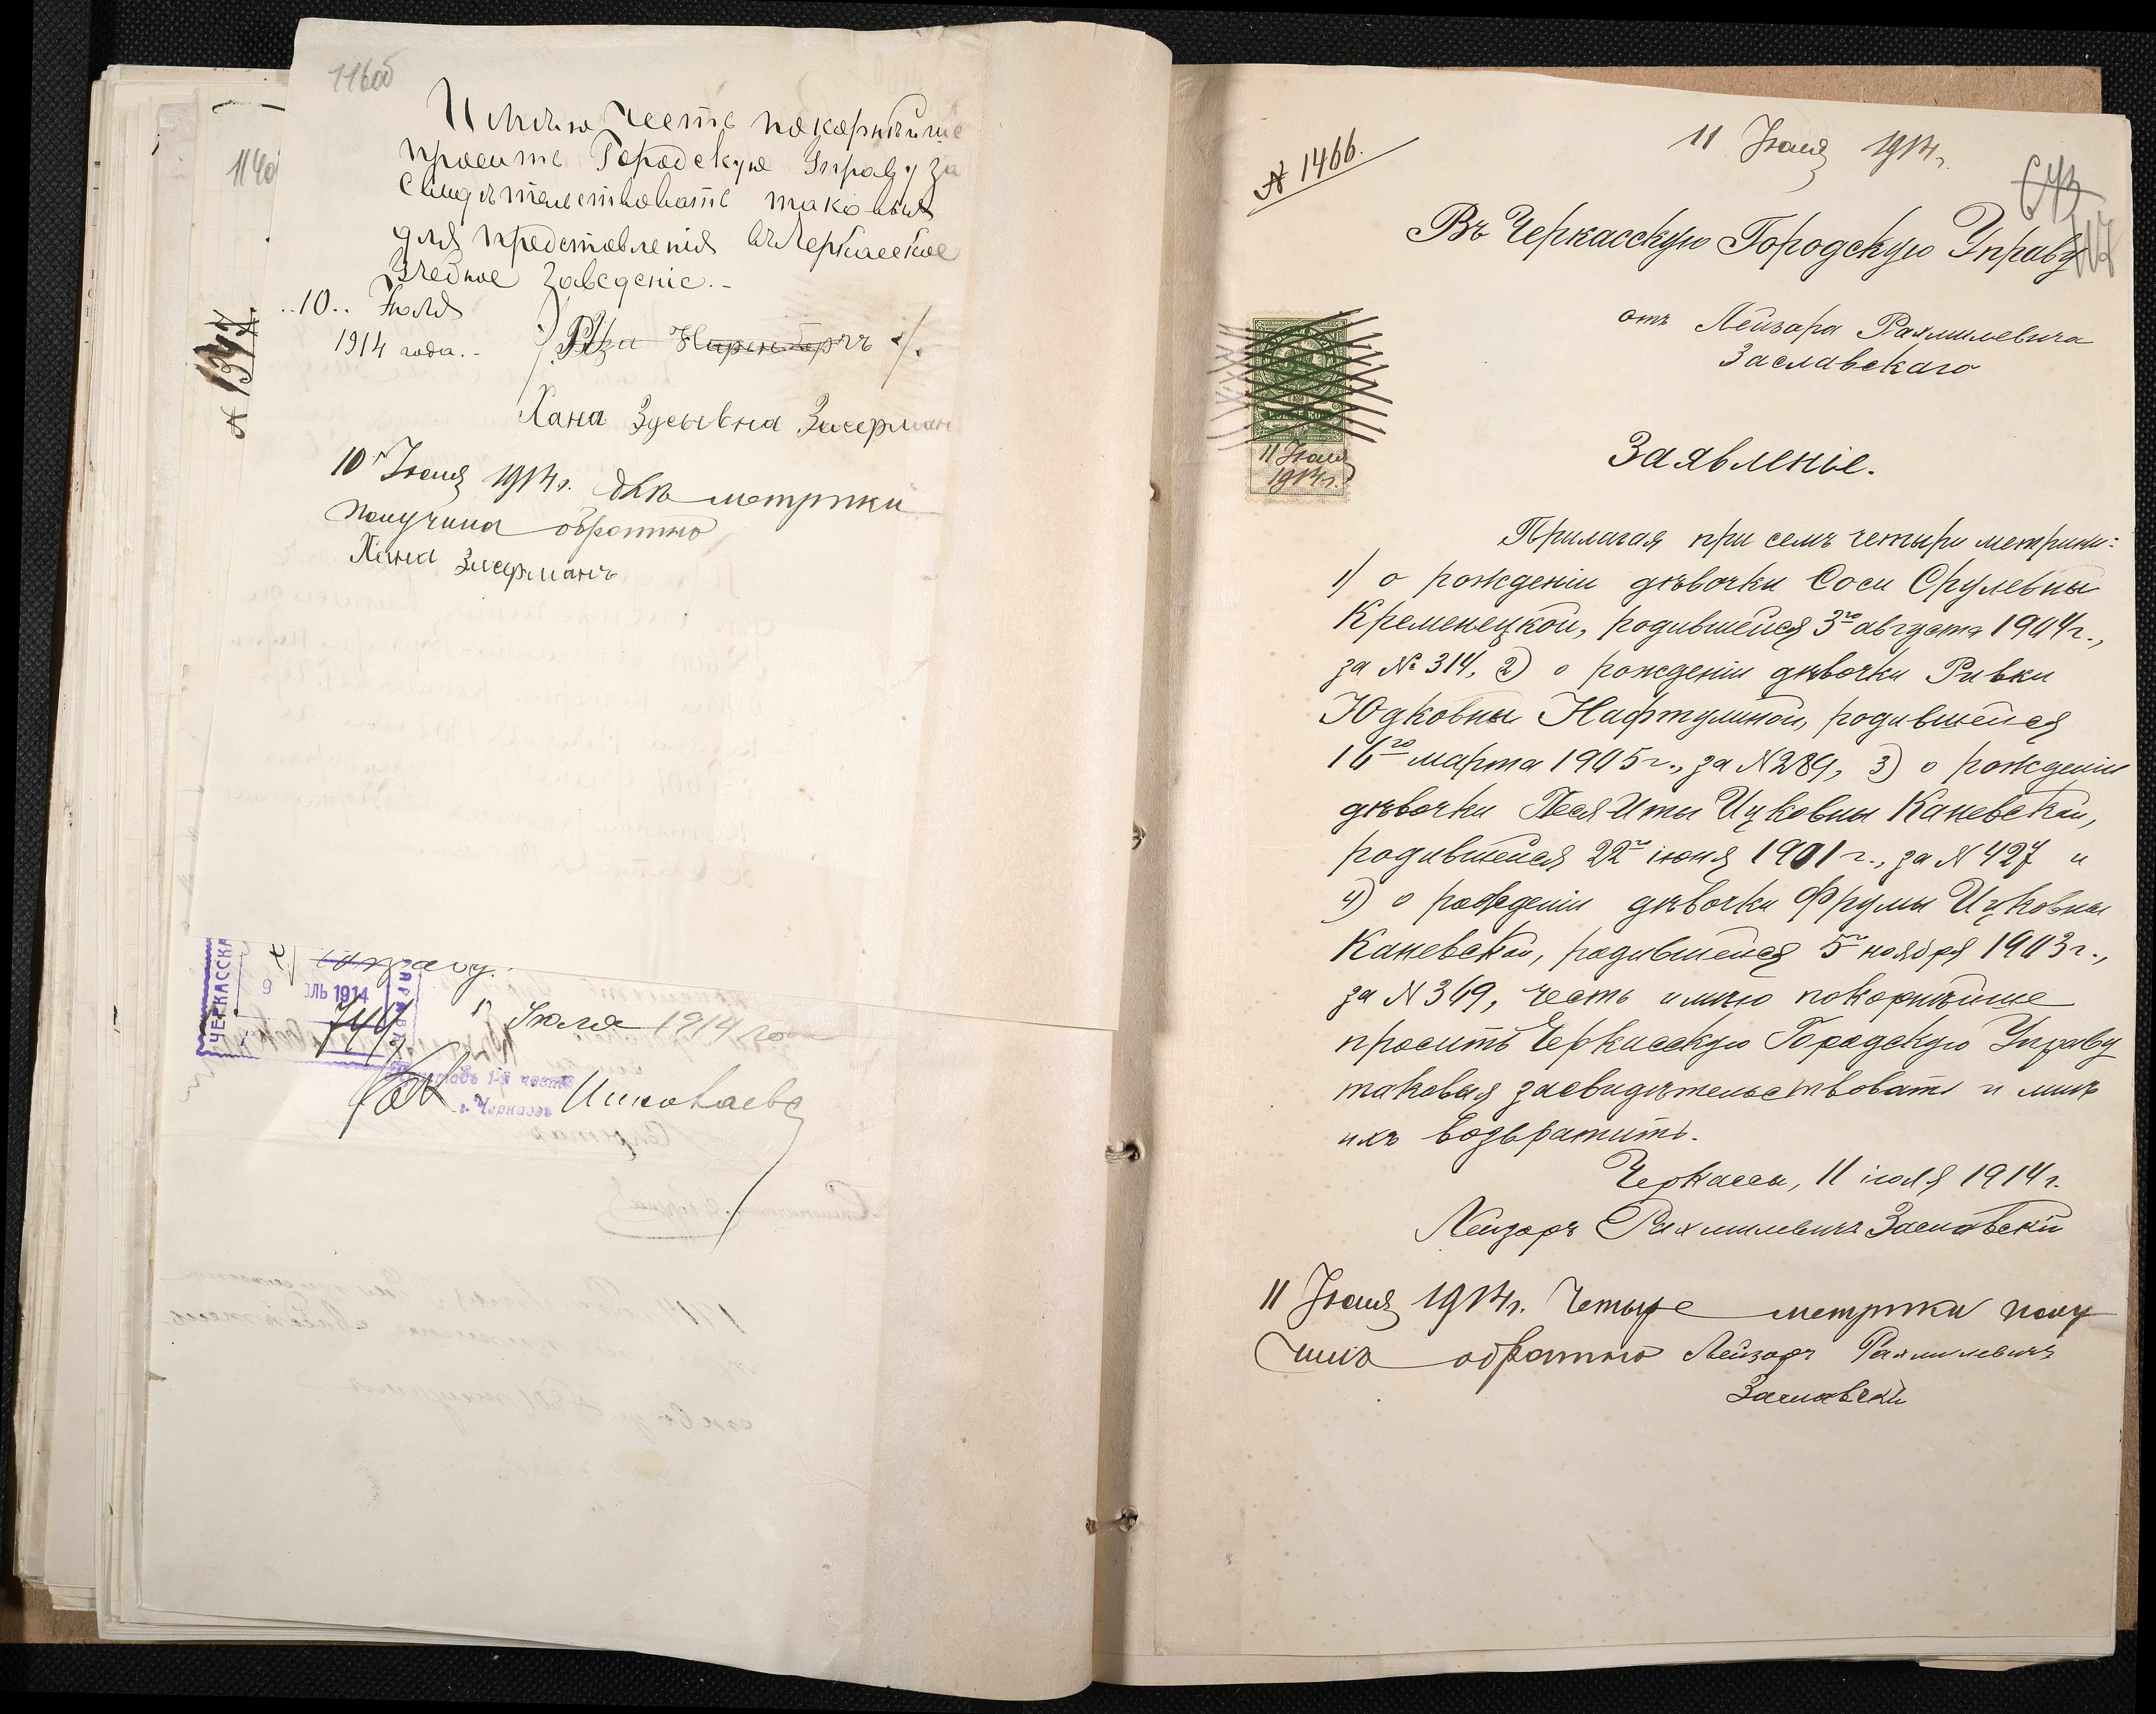 116об
Имѣю честь покорнѣйше
просить Городскую Управу за
свидѣтельствовать таковыя
для представленія въ Черкасское
Учебное Заведеніе.-
..10.. Июля
1914 года.-
Хана Зусьевна Зисерман
10 Іюля 1914 г. двѣ метрики
получила обратно
Хана Зисерманъ
1140
№ 1397.
ЧЕРКАССКА
управу.
9 ЮЛЬ 1914
744
5 Іюля 1914 года
Приставъ 1-й части
г. Черкассъ Николаевъ
11 Іюля 1914 г.
№ 1466.
117
Въ Черкасскую Городскую Управу
отъ Лейзара Рахмилевича
Заславскаго
11 Іюля
1914 г.
Заявленіе.
Прилагая при семъ четыри метрики:
1) о рожденіи дѣвочки Соси Срулевны
Кременецкой, родившейся 3го августа 1904 г.,
за № 314, 2) о рожденіи дѣвочки Ривки
Юдковны Нафтулиной, родившейся
16го марта 1905 г., за № 289, 3) о рожденіи
дѣвочки Песя-Иты Ицковны Каневской,
родившейся 22го іюня 1901 г., за № 427 и
4) о рожденіи дѣвочки Фрумы Ицковны
Каневской, родившейся 5го ноября 1903 г.,
за № 369, честь имѣю покорнѣйше
просить Черкасскую Городскую Управу
таковыя засвидѣтельствовать и мнѣ
ихъ возвратить.
Черкассы, 11 іюля 1914 г.
Лейзаръ Рахмилевичъ Заславскій
11 Іюля 1914 г. Четыре метрики полу
чилъ обратно Лейзаръ Рахмилевичъ
Заславскій